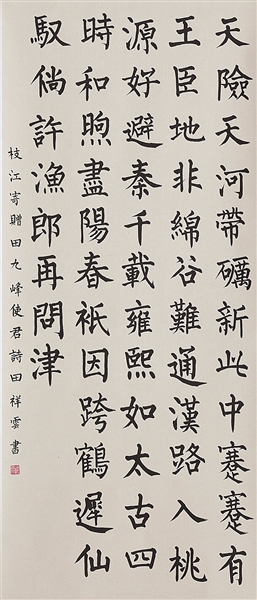 天險天河帶礪新此中蹇蹇有
王臣地非綿谷難通漢路入桃
源好避秦千載雍熙如太古四
時和煦盡陽春祇因跨鶴遲仙
馭倘許漁郎再問津
枝江寄贈田九峰使君詩田祥雲書